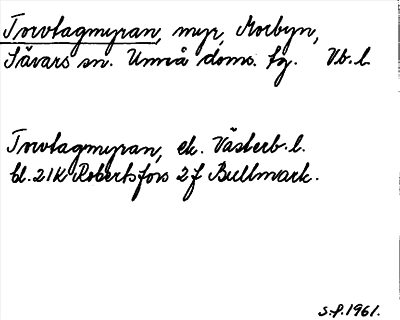 Torvtagmyran, myr, Morbyn,
Sävars sn. Umeå doms. fg. Vb. l.
Torvtagmyran, ek. Västerb. l.
bl. 21K Robertsfors 2f Bullmark.
S.P. 1961.